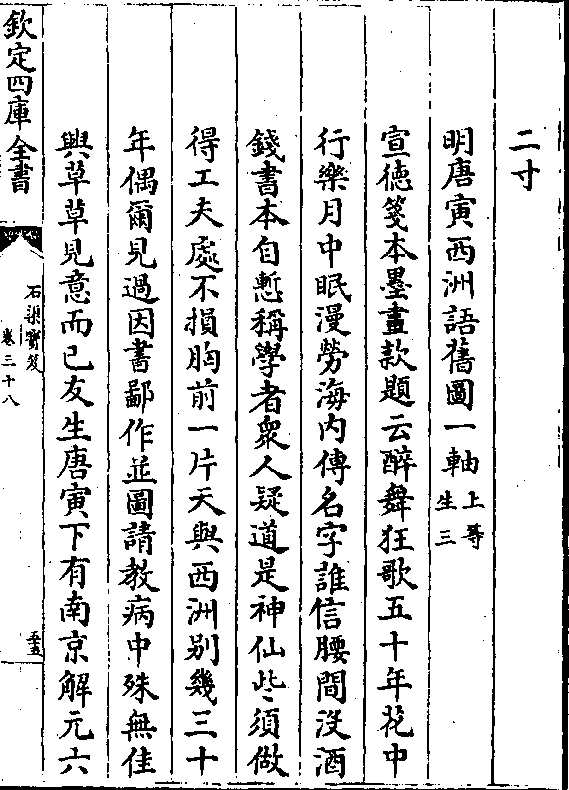 二寸
明唐寅西洲語舊圖一軸上等生三
宣徳箋本墨畫款題云醉舞狂歌五十年花中
行樂月中眠漫勞海内傳名字誰信腰間没酒
錢書本自慙稱學者衆人疑道是神仙些須做
得工夫處不損胸前一片天與西洲别幾三十
年偶爾見過因書鄙作並圖請教病中殊無佳
興草草見意而已友生唐寅下有南京解元六
欽定四庫全書
石渠寳笈
卷三十八